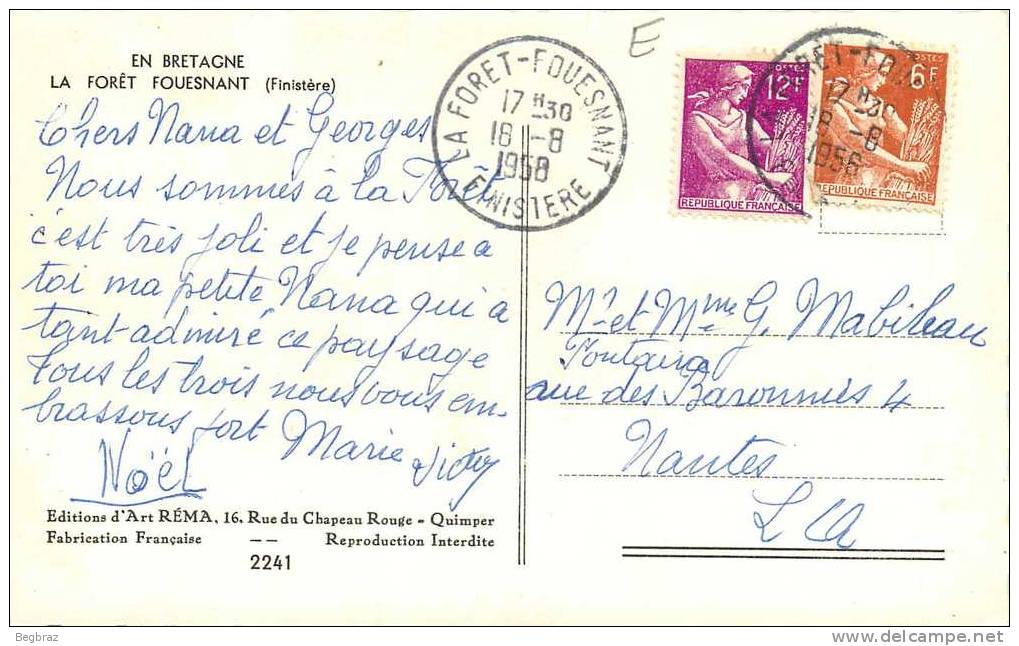 EN BRETAGNE
LA FORÊT FOUESNANT (Finistère)
Chers Nana et Georges
Nous sommes à la Forêt
c'est très joli et je pense à
toi ma petite Nana qui a
tant admiré ce paysage
Tous les trois nous vous em-
brassons fort Marie
Noël
Editions d'Art RÉMA, 16, Rue du Chapeau Rouge - Quimper
Fabrication Française -- Reproduction Interdite
2241
E
LA FORET-FOUESNANT
17 H 30
18 -8
1958
FINISTERE
POSTES
12F
REPUBLIQUE FRANÇAISE
POSTES
6F
REPUBLIQUE FRANÇAISE
17 H 30
18 -8
1958
Mr et Mme G. Mabileau
rue des Baronnies 4
Nantes
L A
Begbraz
www.delcampe.net